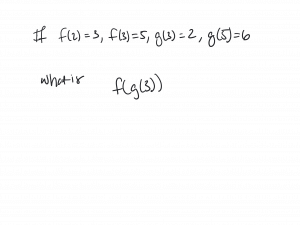 If f(2)=3, f(3)=5, g(3)=2, g(5)=6
what is f(g(3))